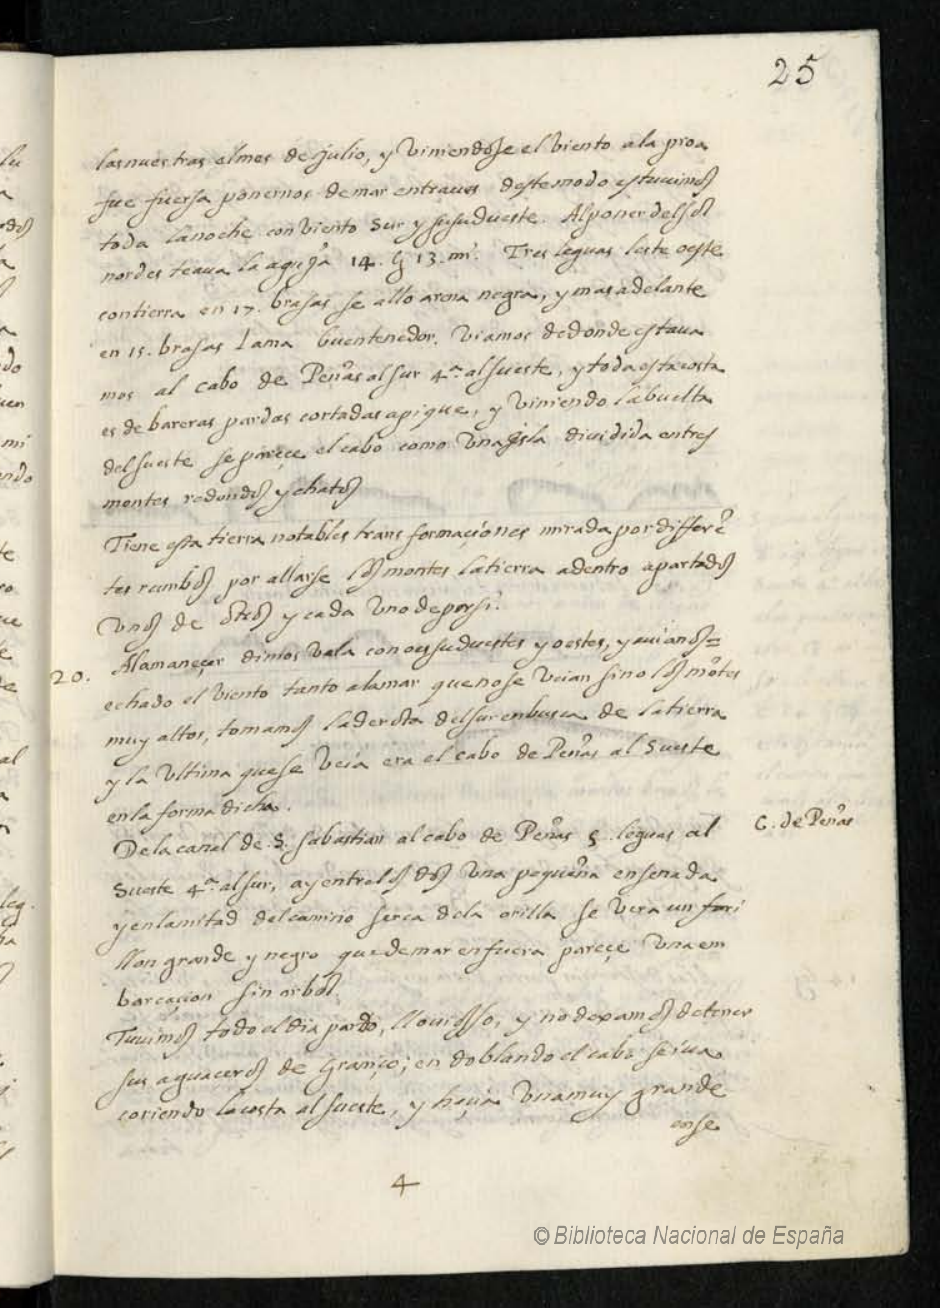 25
las nuestras el mes de Julio, y viniendose el viento a la proa
fue fuersa ponernos de mar entraves deste modo estuvimos
toda la noche con viento Sur y susudueste. Al poner del sol
nordesteava la aguja 14. G 13. mi. Tres leguas leste oeste
con tierra en 17. brasas se allo arena negra, y mas adelante
en 15. brasas Lama buen tenedor. Viamos de donde estava
mos al cabo de Peñas al sur 4.ª al sueste, y toda esta costa
es de bareras pardas cortadas a pique, y viniendo la buelta
del sueste se pareçe el cabo como una isla dividida entres
montes redondos y chatos
Tiene esta tierra notables transformaçiones mirada por differẽ
tes rumbos por allarse los montes la tierra adentro apartados
unos de otros y cada uno de por si.
20. Al amaneçer dimos vala con oessuduestes y oestes, y avianos=
echado el viento tanto a la mar que no se veian sino los mõtes
muy altos, tomamos la derota del sur en busca de la tierra
y la ultima que se veia era el cabo de Peñas al Sueste
en la forma dicha.
De la canal de S. Sabastian al cabo de Peñas 5. leguas al C. de Peñas
Sueste 4.ª al sur, ay entre los dos una pequeña ensenada
y en la mitad del camino serca de la orilla se vera un fari
llon grande y negro que de mar en fuera pareçe una em
barcaçion sin arbol.
Tuvimos todo el dia pardo, llovioso, y no dexamos de tener
sus aguaceros de Graniço; en doblando el cabo se iva
coriendo la costa al sueste, y haçia una muy grande
ense
4
© Biblioteca Nacional de España